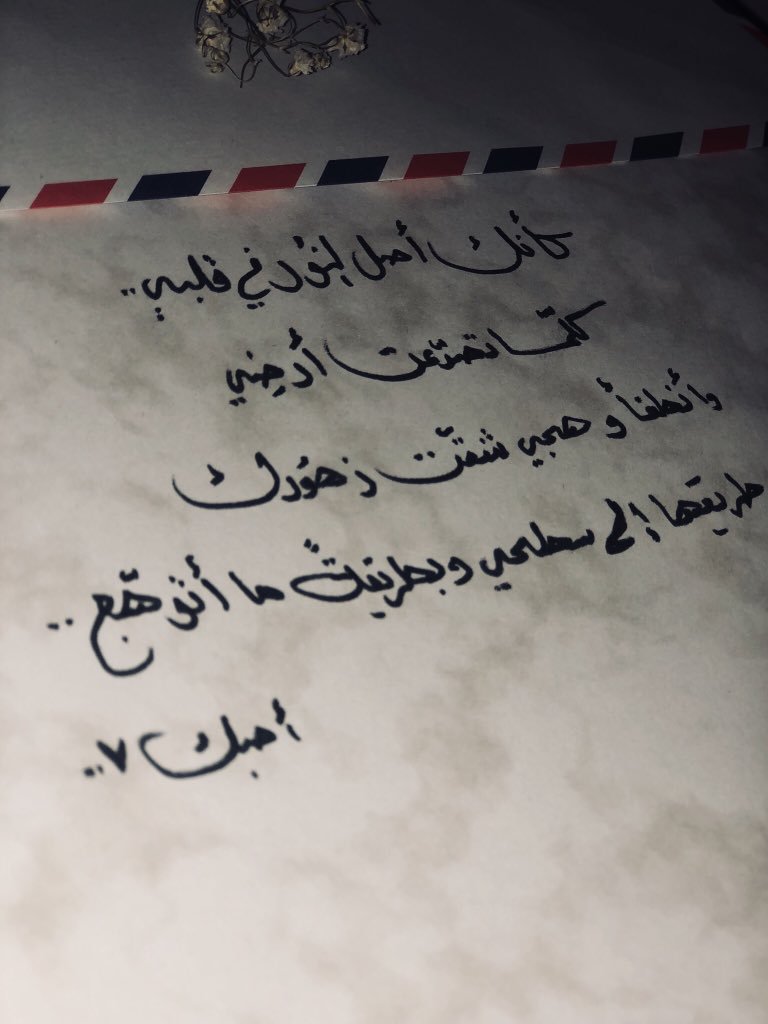 كأنك أصل النُور في قلبي..
كلّما تصدّعت أرضِي
وأنطفأ وهجي شقّت زهُورك
طريقها إلى سطحي وبطريقةً ما أتوهّج..
أحبك ٧..